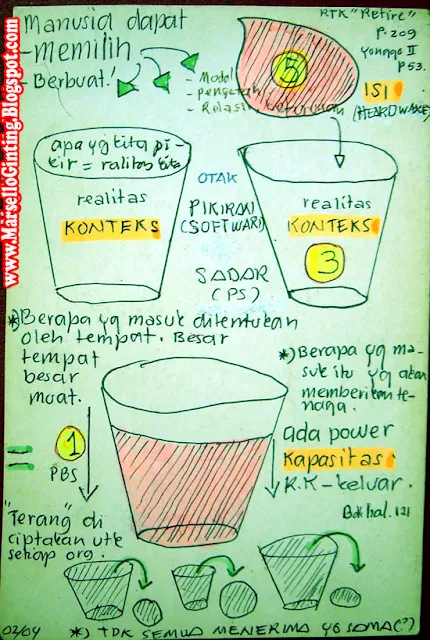 Manusia dapat
-memilih
Berbuat!
RTK "Retire"
P.209
Yongge II
P 53.
5
- Model
- pengetah
- Relasi
ISI
(HEARDWAKE)
apa yg kita pi-
kir = ralitas kita
realitas
KONTEKS
OTAK
PIKIRAN
(SOFTWARE)
SADAR
(PS)
realitas
KONTEKS
3
*) Berapa yg masuk ditentukan
oleh tempat. Besar
tempat
besar
muat.
*) Berapa yg ma-
suk itu yg akan
memberikan te-
naga.
= 1
PBS
ada power
Kapasitas
R.K-keluar.
Bak hal. 121
"Terang" di
ciptakan utk
setiap org.
02/04
*) TDK SEMUA MENERIMA YG SAMA(?)
www.MarselloGinting.Blogspot.com